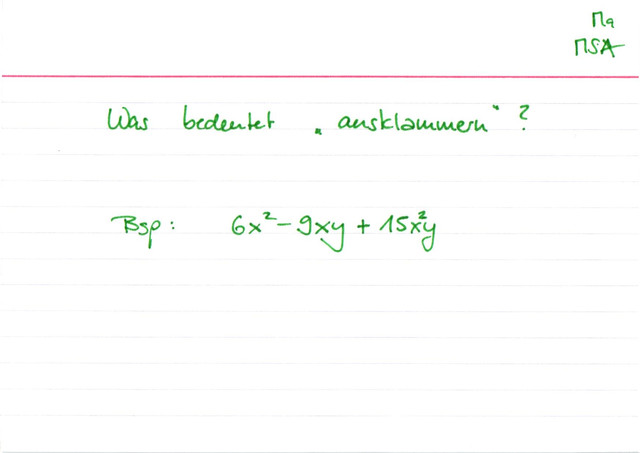 Ma
MSA
Was bedeutet „ausklammern" ?
Bsp: 6x² - 9xy + 15x²y